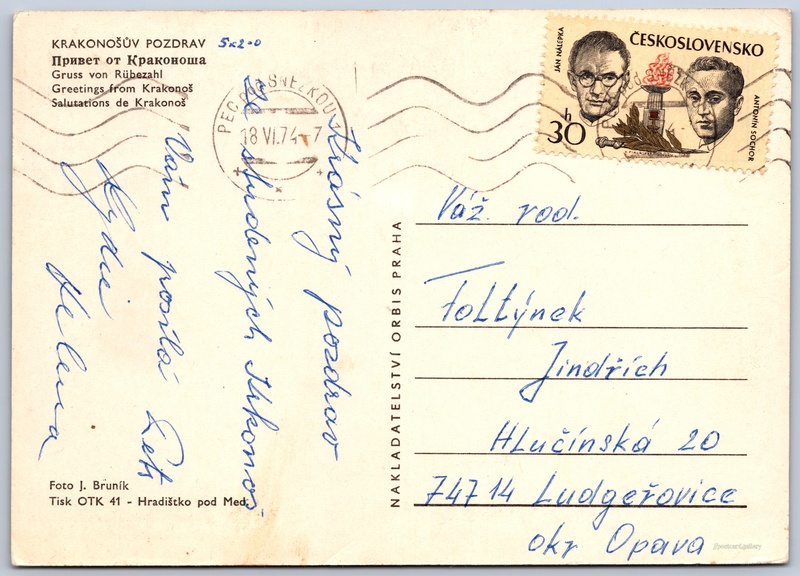 KRAKONOŠŮV POZDRAV 5x2-0
Привет от Краконоша
Gruss von Rübezahl
Greetings from Krakonoš
Salutations de Krakonoš
ČESKOSLOVENSKO
JÁN NÁLEPKA
ANTONÍN SOCHOR
30 h
PEC POD SNĚŽKOU
18.VI.74-7
Krásný pozdrav
ze studených Krkonoš
Vám posílá Petr
Lydie
Helena
NAKLADATELSTVÍ ORBIS PRAHA
Váž. rod.
Foltýnek
Jindřich
Hlučínská 20
74714 Ludgeřovice
okr Opava
Foto J. Bruník
Tisk OTK 41 - Hradištko pod Med.